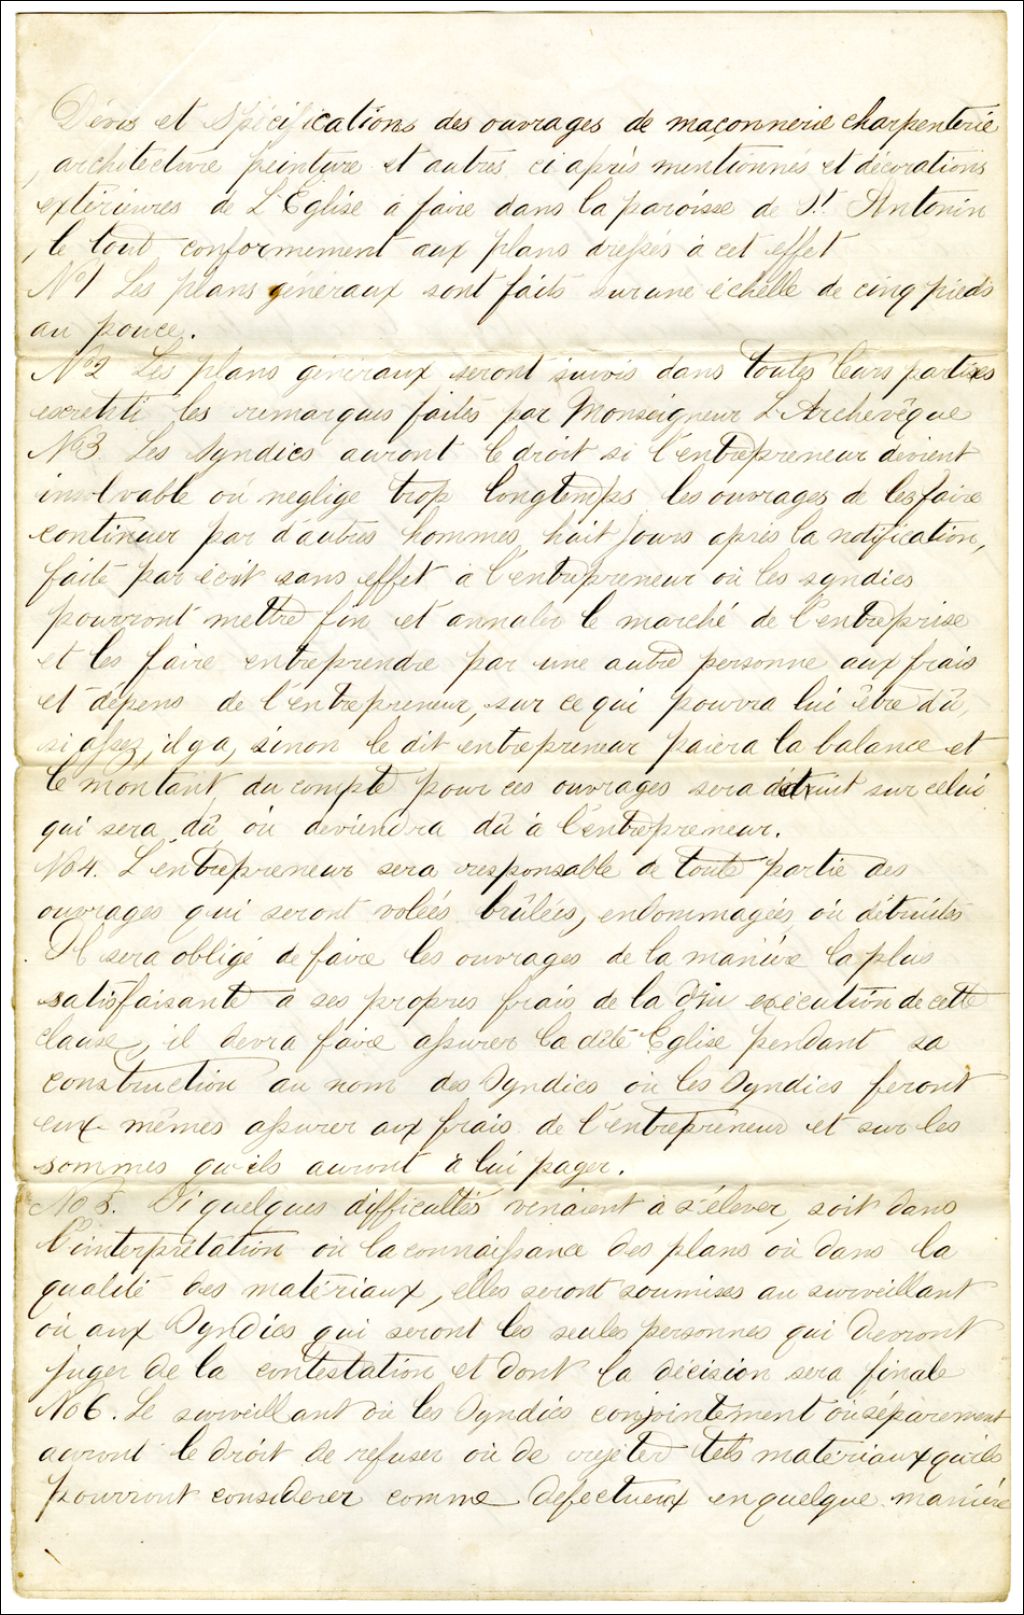 Dévis et Spécifications des ouvrages de maçonnerie charpenterie
, architecture peinture et autres ci après mentionnés et décorations
extérieures de L'Église à faire dans la paroisse de St Antonin
, le tout conformement aux plans dressés à cet effet
No 1 Les plans généraux sont faits sur une échelle de cinq pieds
au pouce.
No 2 Les plans généraux seront suivis dans toutes leurs parties
les remarques faites par Monseigneur L'Archevêque
No 3. Les Syndics auront le droit si l'entrepreneur devient
insolvable où neglige trop longtemps les ouvrages de les faire
continuer par d'autres hommes, huit jours après la notification,
faite par écrit sans effet à l'entrepreneur où les syndics
pourront mettre fin et annuler le marché de l'entreprise
et les faire entreprendre par une autre personne aux frais
et dépens de l'entrepreneur, sur ce qui pourra lui être dû,
si assez, il y a, sinon le dit entrepreneur paiera la balance et
le montant du compte pour ces ouvrages sera détruit sur celui
qui sera dû où deviendra dû à l'entrepreneur.
No 4. L'entrepreneur sera responsable de toute partie des
ouvrages qui seront volées brûlées, endommagées où détruites
Il sera obligé de faire les ouvrages de la manière la plus
satisfaisante a ses propres frais de la due exécution de cette
clause, il devra faire assurer la dite Eglise pendant sa
construction au nom des Syndics où les Syndics feront
eux-mêmes assurer aux frais de l'entrepreneur et sur les
sommes qu'ils auront à lui payer.
No 5. Si quelques difficultés venaient à s'élever, soit dans
l'interprétation où la connaissance des plans où dans la
qualité des matériaux, elles seront soumises au surveillant
où aux Syndics qui seront les seules personnes qui devront
juger de la contestation et dont la décision sera finale
No 6. Le surveillant où les Syndics conjointement où séparement
auront le droit de refuser où de rejeter tels matériaux qu'ils
pourront considerer comme defectueux en quelque manière